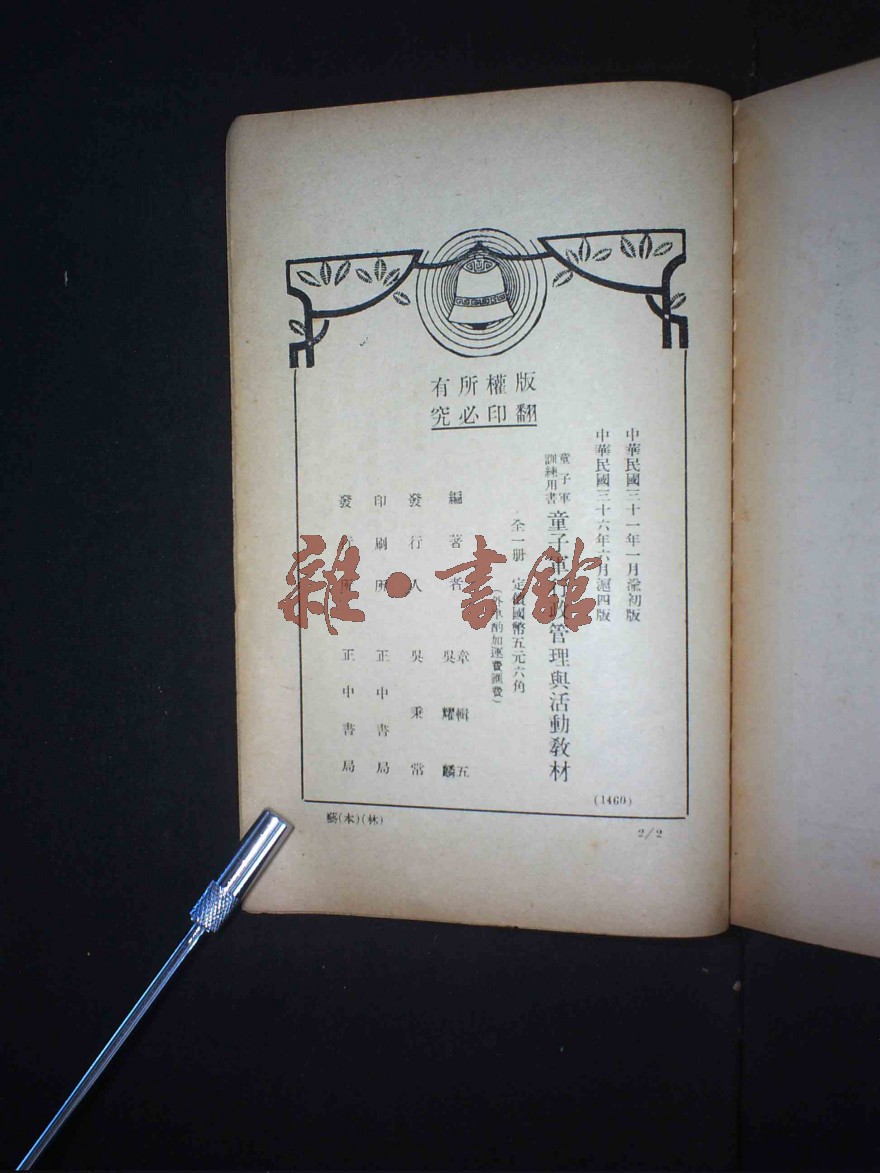 版權所有
翻印必究
中華民國三十一年一月渝初版
中華民國三十六年六月滬四版
童子軍訓練用書
童子軍 政管理與活動教材
全一册 定價國幣五元六角
(外埠酌加運費匯費)
編著者 章輯五 吳耀麟
發行人 吳秉常
印刷所 正中書局
發 所 正中書局
(1460)
藝(本)(林)
2/2
雜·書館